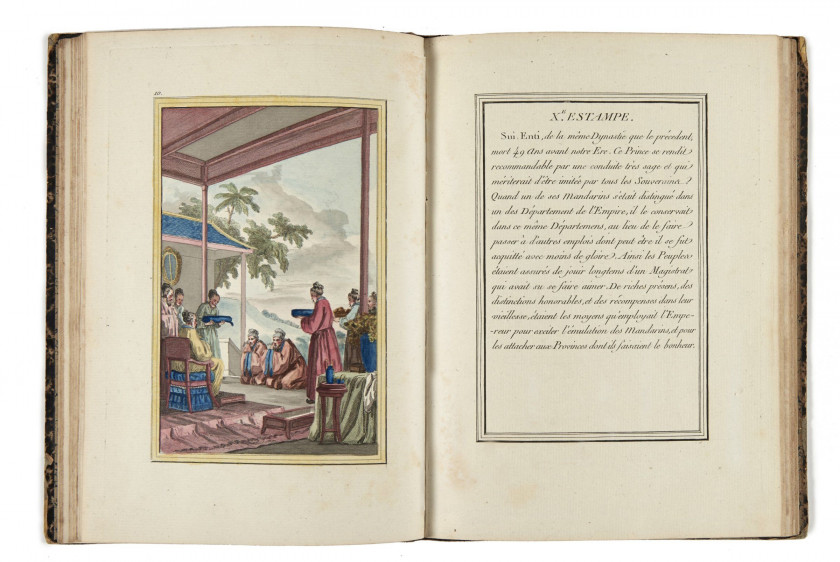 10.
X.e ESTAMPE.
Sui Enti, de la même Dynastie que le précédent,
mort 49 Ans avant notre Ere. Ce Prince se rendit
recommandable par une conduite très sage et qui
mériterait d'être imitée par tous les Souverains.
Quand un de ses Mandarins s'était distingué dans
un des Département de l'Empire, il le conservait
dans ce même Départemens, au lieu de le faire
passer à d'autres emplois dont peut être il se fut
acquitté avec moins de gloire. Ainsi les Peuples
étaient assurés de jouir longtems d'un Magistrat
qui avait su se faire aimer. De riches présens, des
distinctions honorables, et des récompenses dans leur
vieillesse, étaient les moyens qu'employait l'Empe-
-reur pour exciter l'émulation des Mandarins, et pour
les attacher aux Provinces dont ils faisaient le bonheur.